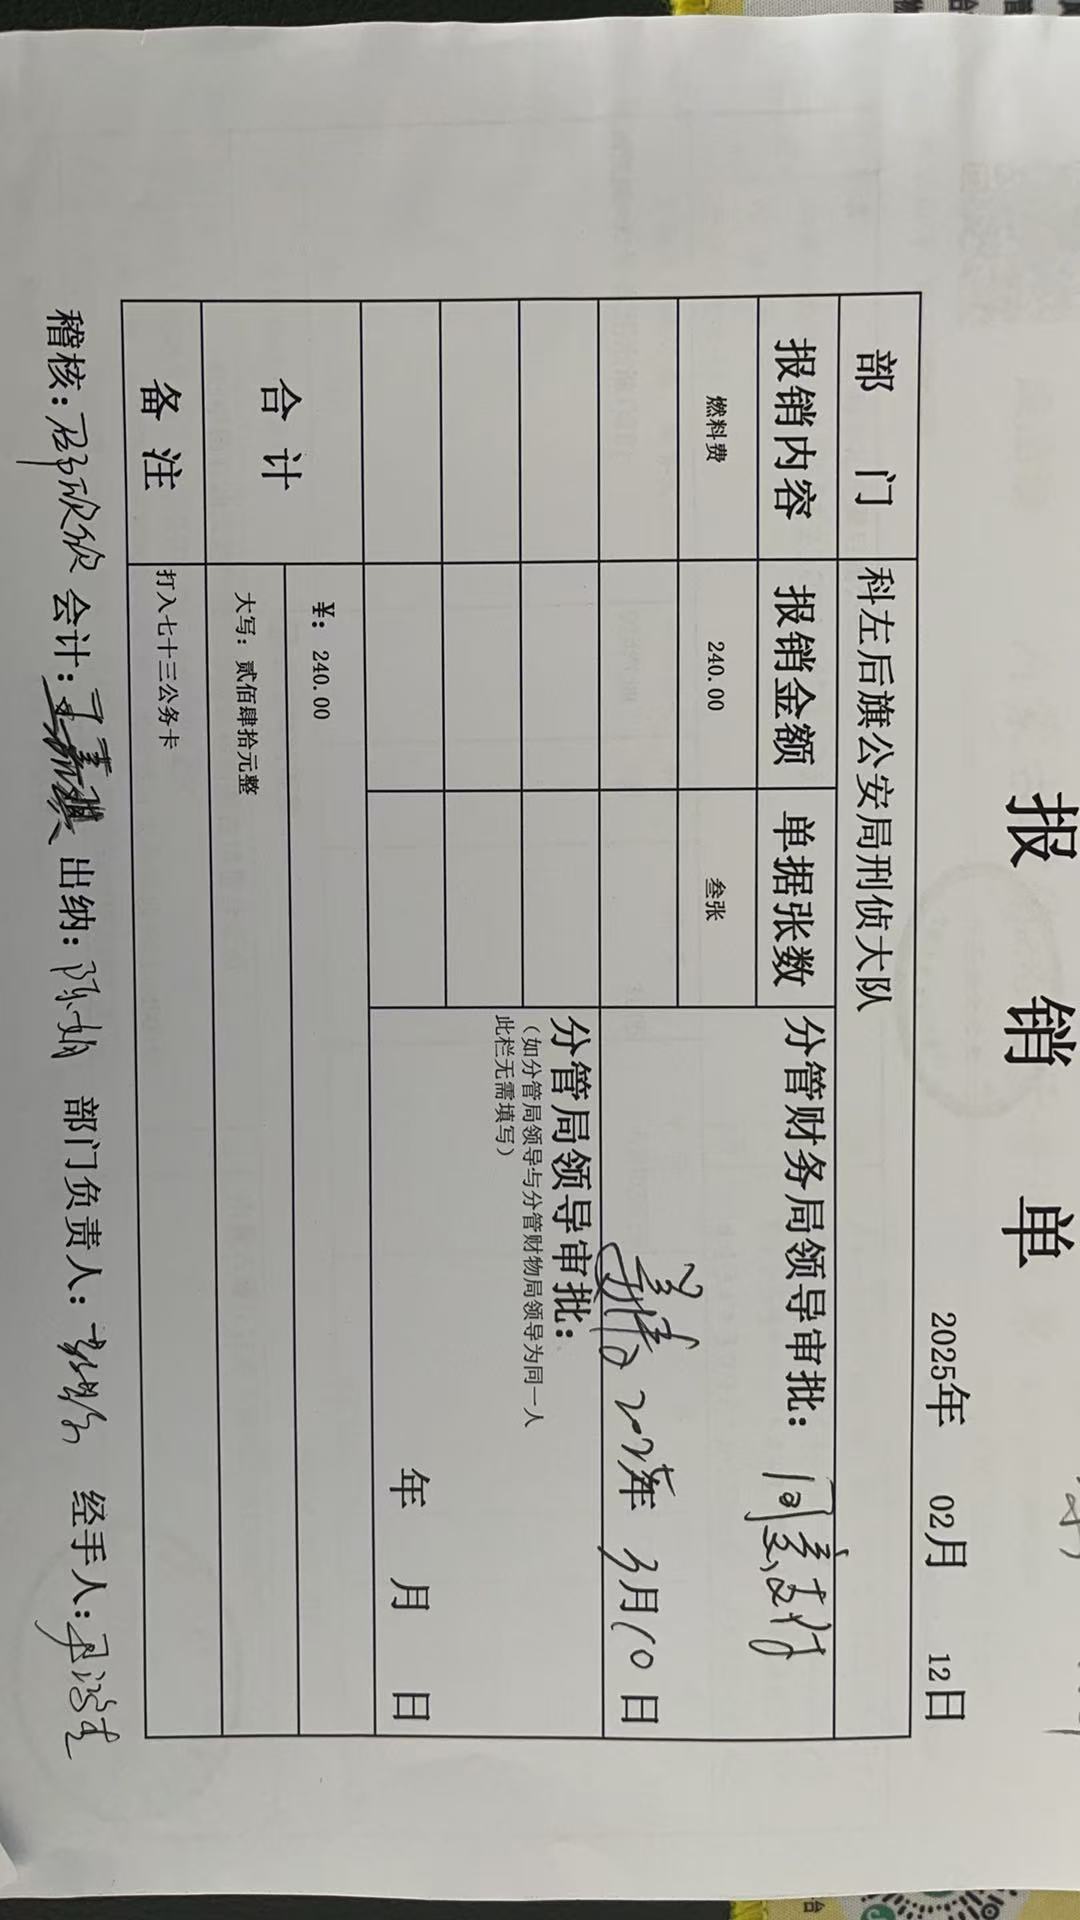 报 销 单
2025年 02月 12日
部 门 科左后旗公安局刑侦大队
报销内容 报销金额 单据张数 分管财务局领导审批：同意支付
燃料费 240.00 叁张
2025年 3月10日
分管局领导审批：
（如分管局领导与分管财物局领导为同一人
此栏无需填写）
年 月 日
合 计 ¥：240.00
大写：贰佰肆拾元整
备 注 打入七十三公务卡
稽核： 会计： 出纳：陈娟 部门负责人： 经手人：